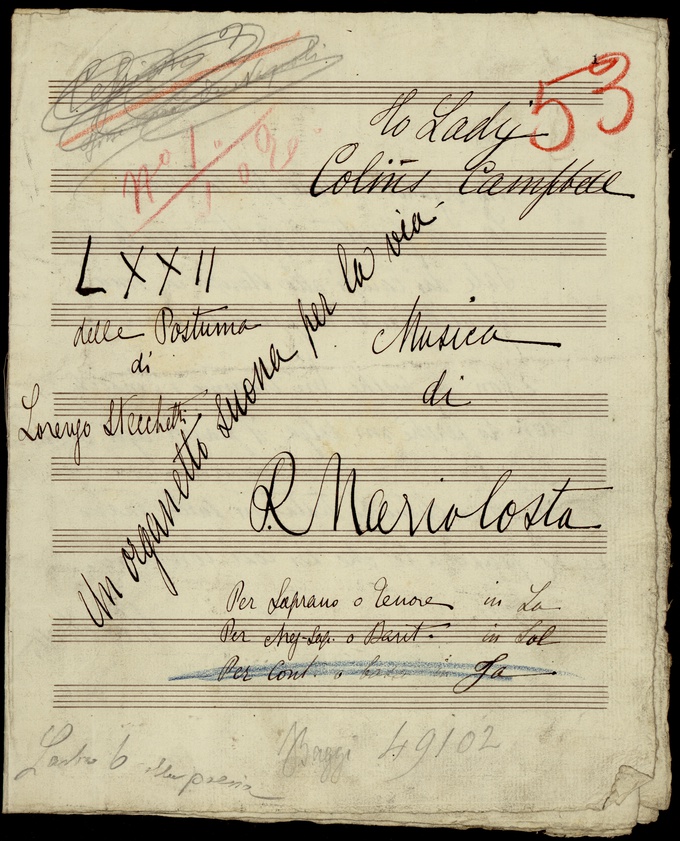 1
53
To Lady
Colin's Campbell
No 1.
LXXII
delle Postuma
di
Lorenzo Stecchetti
Un organetto suona per la via
Musica
di
P. Mario Costa
Per Soprano o Tenore in La
Per Mez-Sop. o Barit. in Sol
Per Cont. o in Fa
6
49102